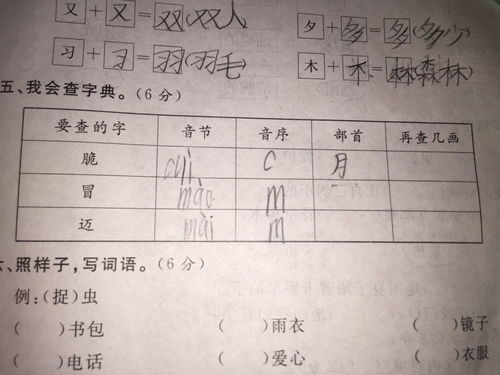 又+又=双(双人 夕+多=多(多少)
习+习=羽(羽毛) 木+木=森(森林)
五、我会查字典。(6分)
要查的字 音节 音序 部首 再查几画
脆 cuì C 月
冒 mào m
迈 mài m
六、照样子,写词语。(6分)
例:(捉)虫
( )书包 ( )雨衣 ( )镜子
( )电话 ( )爱心 ( )衣服